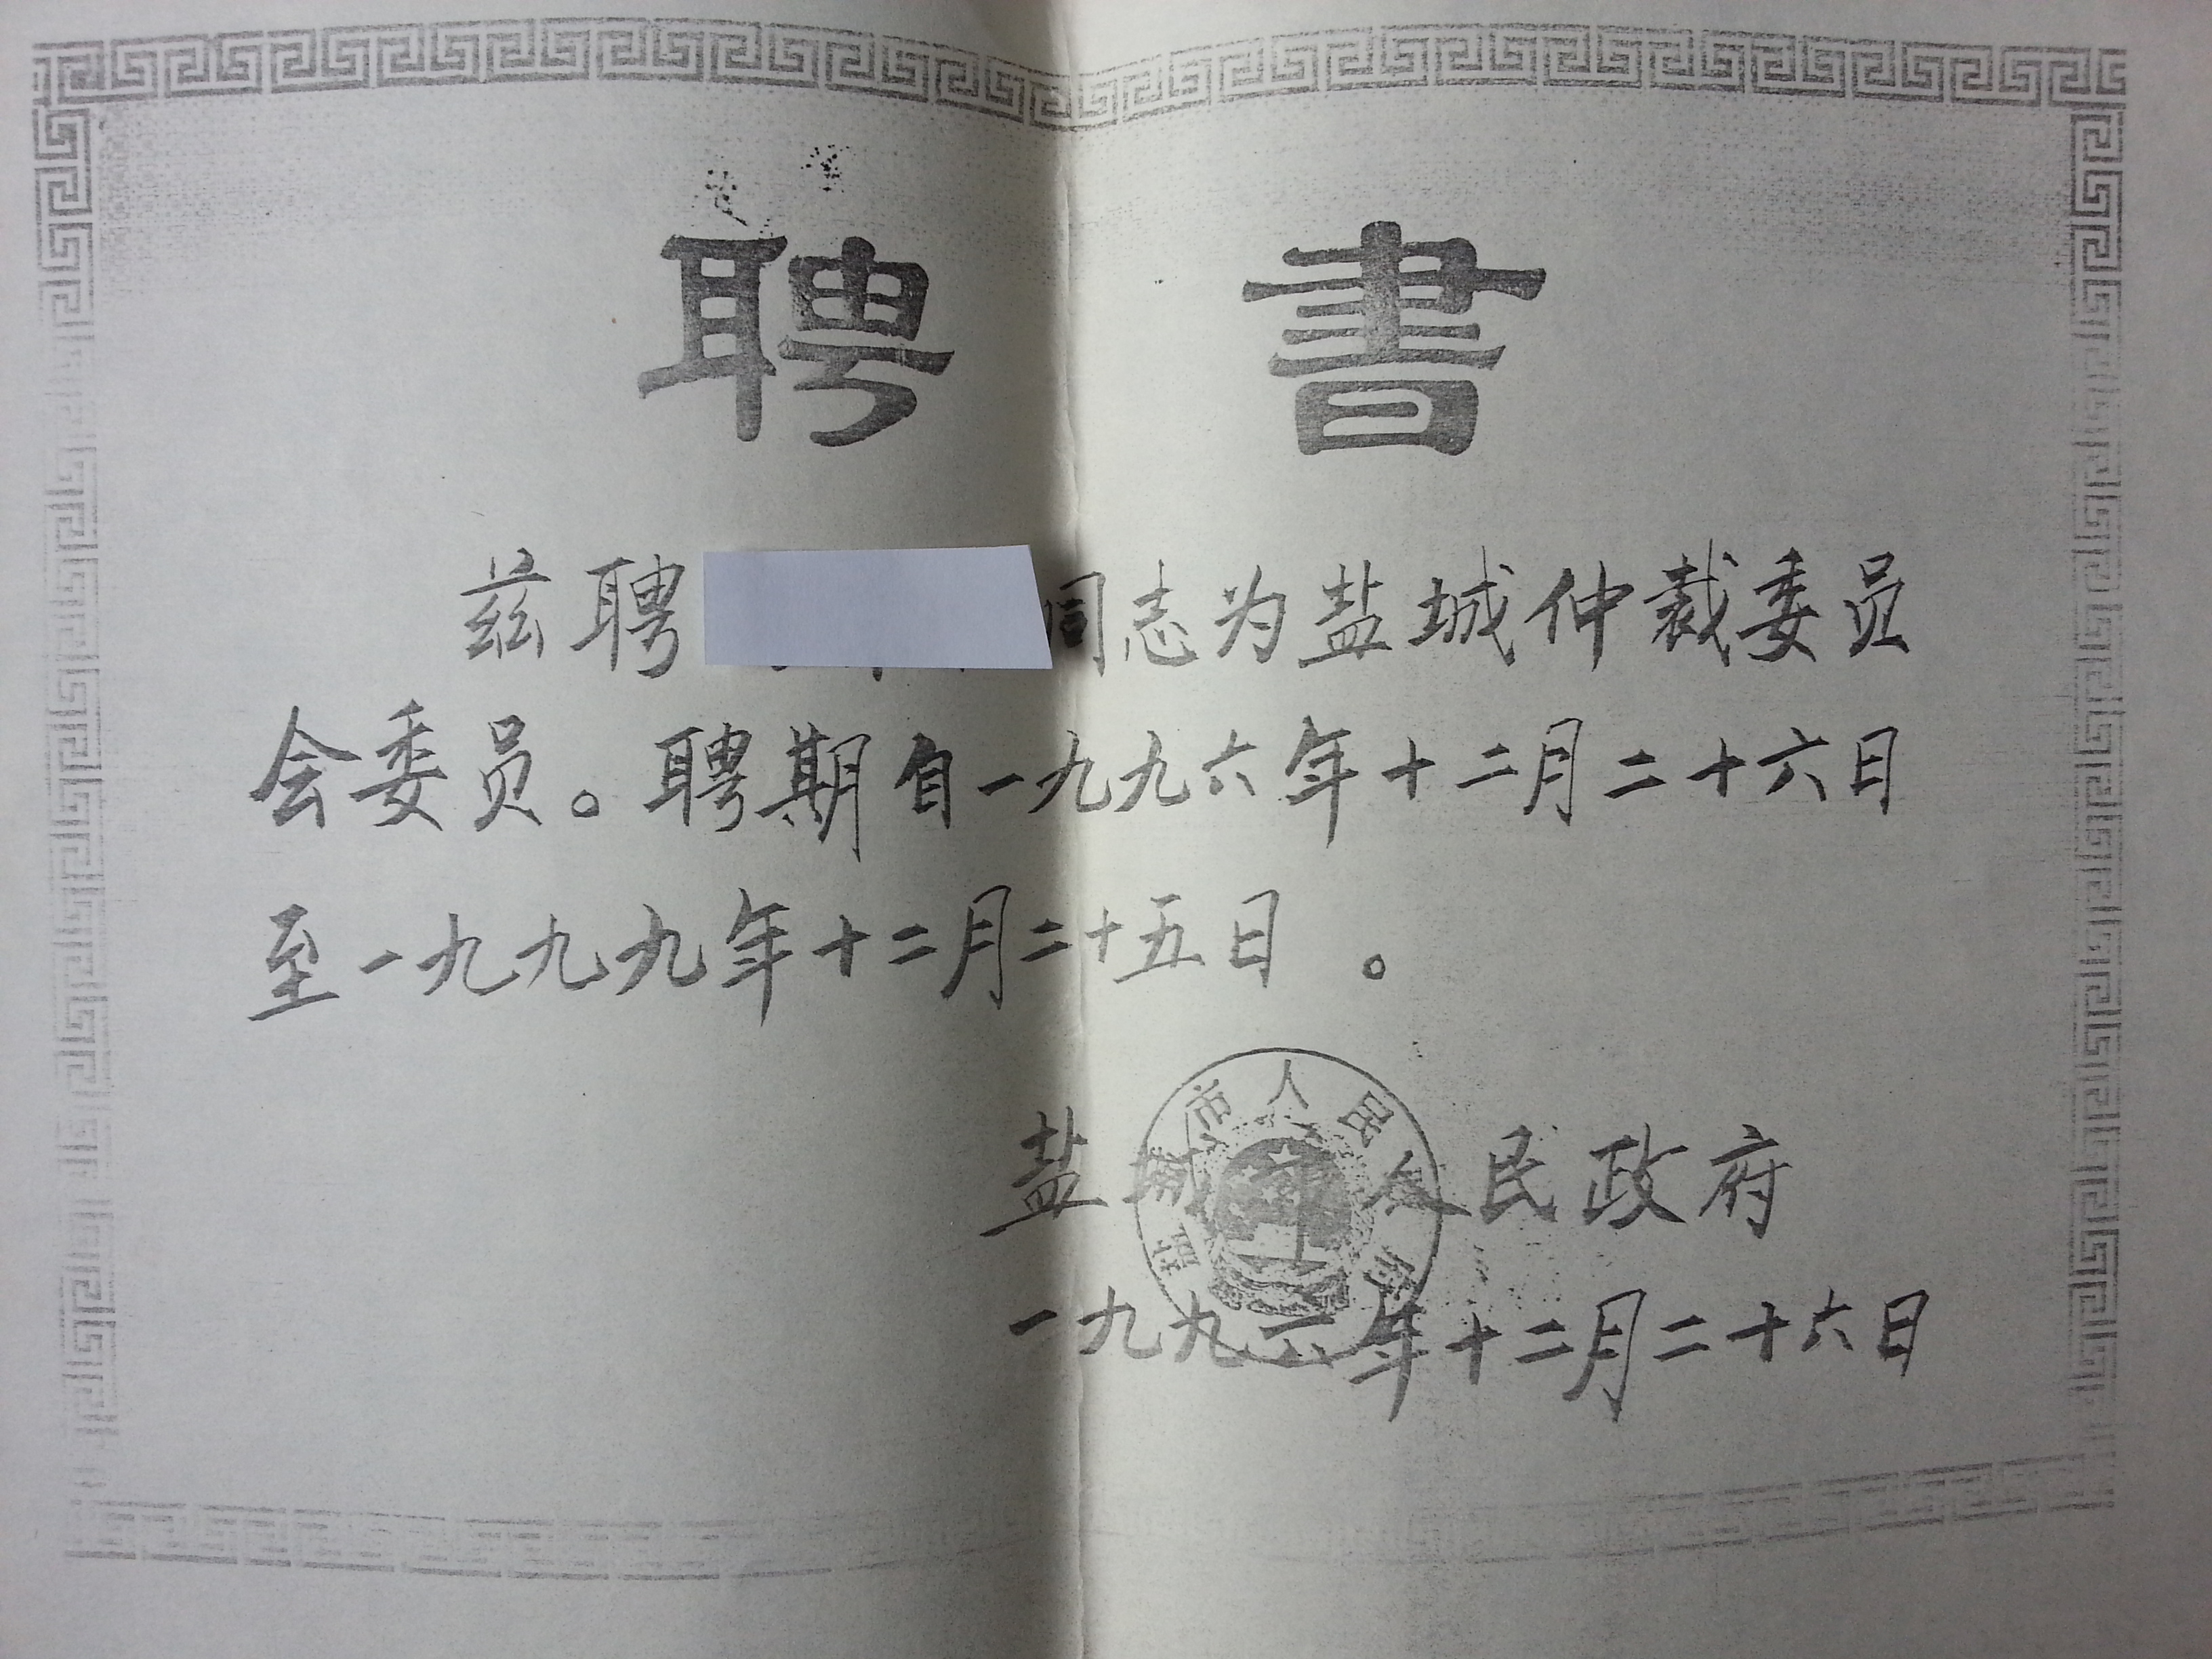 聘書
兹聘 同志为盐城仲裁委员
会委员。聘期自一九九六年十二月二十六日
至一九九九年十二月二十五日。
盐城市人民政府
一九九六年十二月二十六日
盐城市人民政府